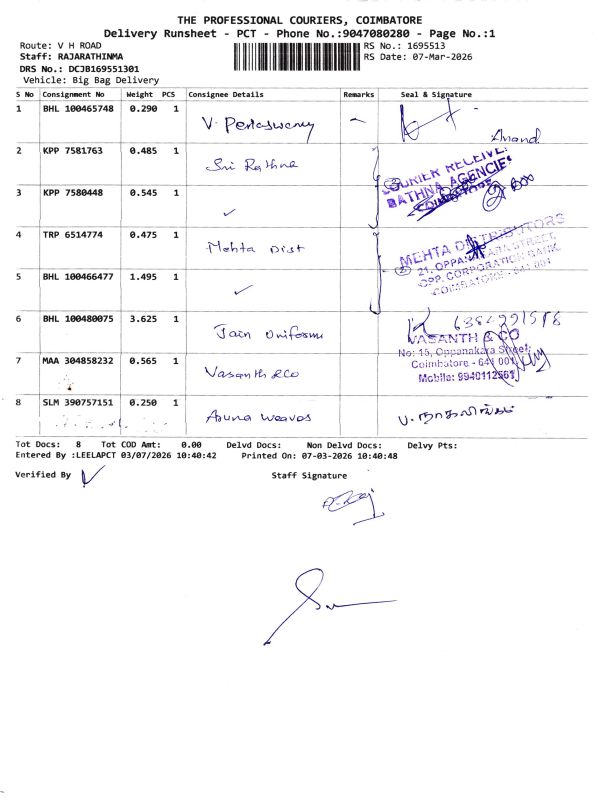 THE PROFESSIONAL COURIERS, COIMBATORE
Delivery Runsheet - PCT - Phone No.:9047080280 - Page No.:1
Route: V H ROAD
RS No.: 1695513
Staff: RAJARATHINMA
RS Date: 07-Mar-2026
DRS No.: DCJB169551301
Vehicle: Big Bag Delivery
S No Consignment No Weight PCS Consignee Details Remarks Seal & Signature
1 BHL 100465748 0.290 1 V. Periaswamy
Anand
2 KPP 7581763 0.485 1 Sri Rathna
COURIER RECEIVE
RATHNA AGENCIES
COIMBATORE
3 KPP 7580448 0.545 1 ✓
4 TRP 6514774 0.475 1 Mehta Dist
MEHTA DISTRIBUTORS
21, OPPANAKARA STREET,
OPP. CORPORATION BANK,
COIMBATORE - 641 001
5 BHL 100466477 1.495 1 ✓
6 BHL 100480075 3.625 1 Jain Uniforms
7 MAA 304858232 0.565 1 Vasanth & Co
VASANTH & CO
No: 15, Oppanakara Street,
Coimbatore - 641 001
Mobile: 9940112561
8 SLM 390757151 0.250 1 Aruna Weaves
Tot Docs: 8 Tot COD Amt: 0.00 Delvd Docs: Non Delvd Docs: Delvy Pts:
Entered By :LEELAPCT 03/07/2026 10:40:42 Printed On: 07-03-2026 10:40:48
Verified By
Staff Signature